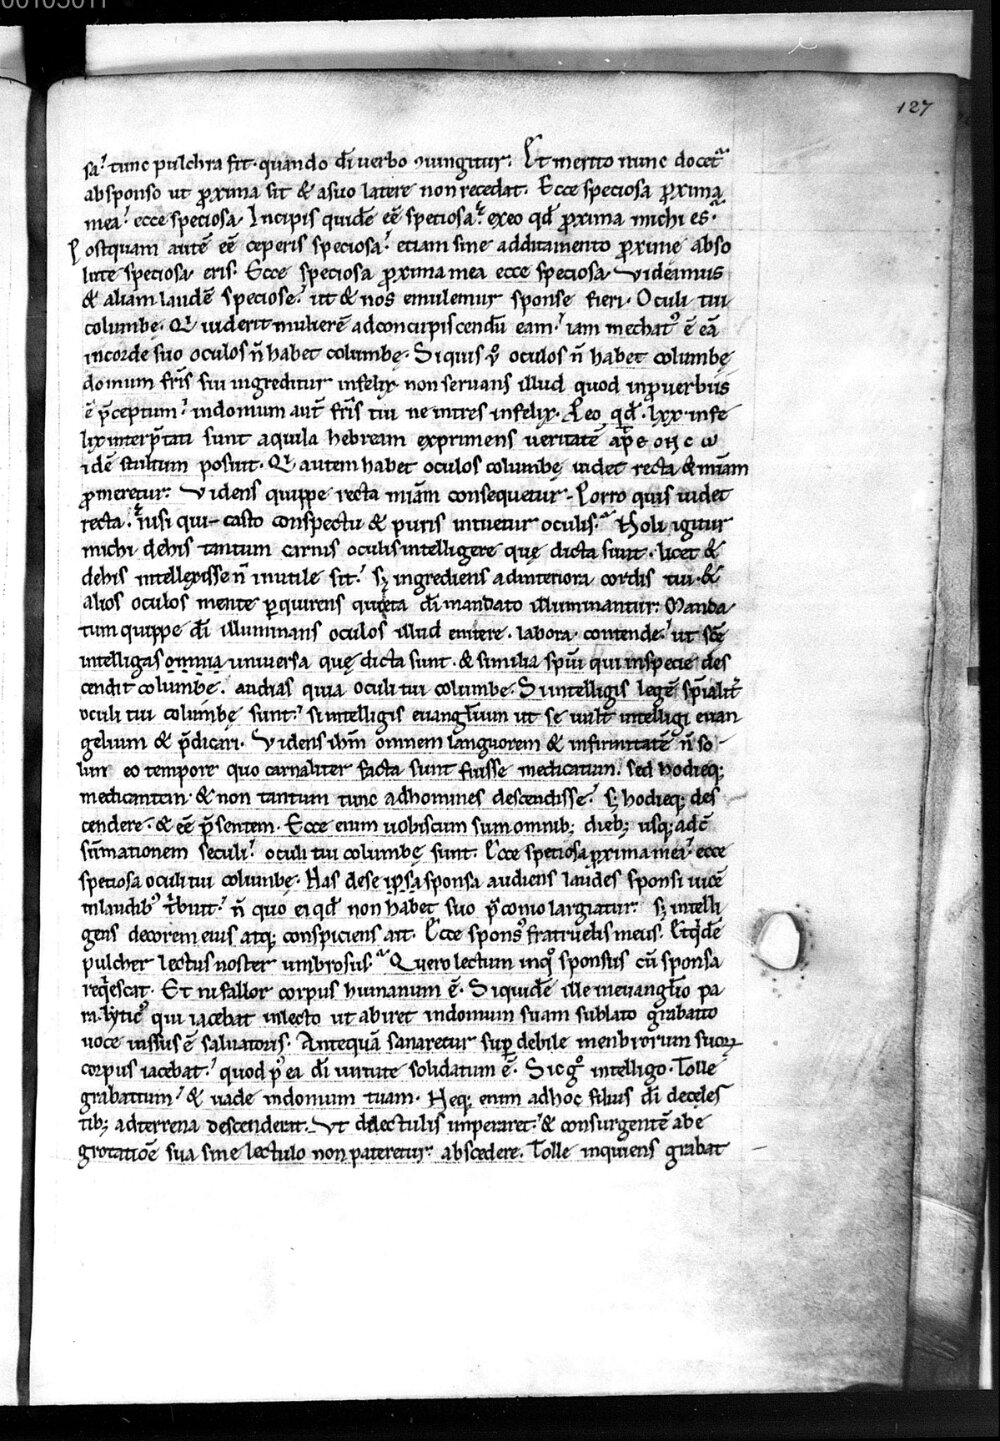 00103011
127
sa.' tunc pulchra sit. quando dī verbo ꝯiungitur. Et merito nunc docet᷑
absponso ut ꝓxima sit & asuo latere non recedat. Ecce speciosa ꝓxima
mea.' ecce speciosa. Incipis quidē eē speciosa. exeo qđ ꝓxima michi es.
Postquam autē eē ceperis speciosa.' etiam sine additamento ꝓxime abso
lute speciosa eris. Ecce speciosa ꝓxima mea ecce speciosa. Videamus
& aliam laudē speciose.' ut & nos emulemur sponse fieri. Oculi tui
columbę. Qi uiderit mulierē adconcupiscendū eam.' iam mechat᷒ ē eā
incorde suo oculos n̄ habet columbę. Siquis ṽ oculos n̄ habet columbę
domum fr̄is sui ingreditur infelix non seruans illud quod inꝓuerbiis
ē p̄ceptum.' indomum aut̄ fr̄is tui ne intres infelix. Leo qđ. lxx. infe
lix interp̄tati sunt aquila hebream exprimens ueritatē
idē stultum posuit. Qi autem habet oculos columbę uidet recta & mīam
ꝓmeretur. Videns quippe recta mīam consequetur. Porro quis uidet
recta. nisi qui casto conspectu & puris intuetur oculis. Noli igitur
michi debis tantum carnis oculis intelligere quę dicta sunt. licet &
debis intellexisse n̄ inutile sit.' sꝫ ingrediens adinteriora cordis tui. &
alios oculos mente ꝑquirens qui dī mandato illuminantur. Manda
tum quippe dī illuminans oculos illud enitere. labora. contende.' ut scē
intelligas omnia uniuersa quę dicta sunt. & similia spūi qui inspecie des
cendit columbę. audias quia oculi tui columbę. Si intelligis legē sp̄ialit̄
oculi tui columbę sunt.' si intelligis euangl̄ium ut se uult intelligi euan
gelium & p̄dicari. Videns ihm̄ omnem languorem & infirmitatē n̄ so
lum eo tempore quo carnaliter facta sunt fuisse medicatum. sed hodieqꝫ
medicantem. & non tantum tunc adhomines descendisse.' sꝫ hodieqꝫ des
cendere. & eē p̄sentem. Ecce enim uobiscum sum omnibꝫ diebꝫ usqꝫ adcō
sūmationem seculi.' oculi tui columbę sunt. Ecce speciosa ꝓxima mea.' ecce
speciosa oculi tui columbę. Has dese ipsa sponsa audiens laudes sponsi uicē
inlaudib᷒ t̄buit.' n̄ quo ei qđ non habet suo p̄conio largiatur. sꝫ intelli
gens decorem eius atqꝫ conspiciens ait. Ecce spons᷒ fratruelis meus. Et qdē
pulcher lectus noster umbrosus. Quero lectum inq̊ sponsus cū sponsa
reqescat. Et ni fallor corpus humanum ē. Siquidē ille meuangl̄io pa
ralytic᷒ qui iacebat inlecto ut abiret indomum suam sublato grabatto
uoce iussus ē saluatoris. Antequā sanaretur suꝑ debile menbrorum suoꝝ
corpus iacebat.' quod p᷒ ea dī uirtute solidatum ē. Sic g̊ intelligo. Tolle
grabattum.' & uade indomum tuam. Neqꝫ enim adhoc filius dī decęles
tibꝫ adterrena descenderit. Vt delectulis imperaret.' & consurgentē abe
grotatiōe sua sine lectulo non pateretur abscedere. Tolle inquiens grabat